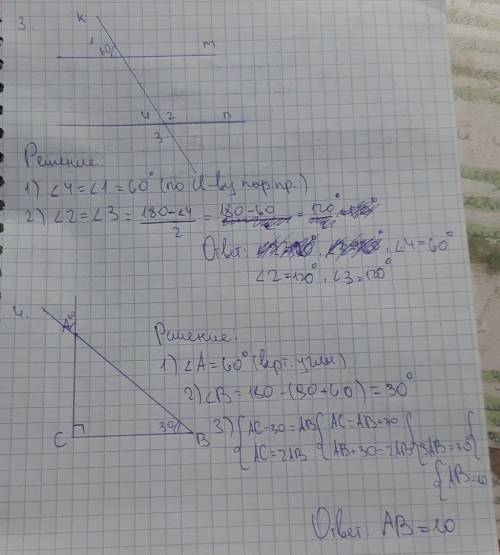 3.
K
1
60
m
4 2
n
3
Решение:
1) ∠4=∠1=60° (по св-ву пар.пр.)
2) ∠2=∠3= (180-∠4)/2 = (180-60)/ = 120°
Ответ: ∠4=60°
∠2=120°, ∠3=120°
4.
A
C
30
B
Решение:
1) ∠A=60° (верт. углы)
2) ∠B=180-(90+60)=30°
3) { AC-30=AB { AC=AB+30 {
{ AC=2AB { AB+30=2AB { 3AB=30 {
{ AB=10
Ответ: AB=10